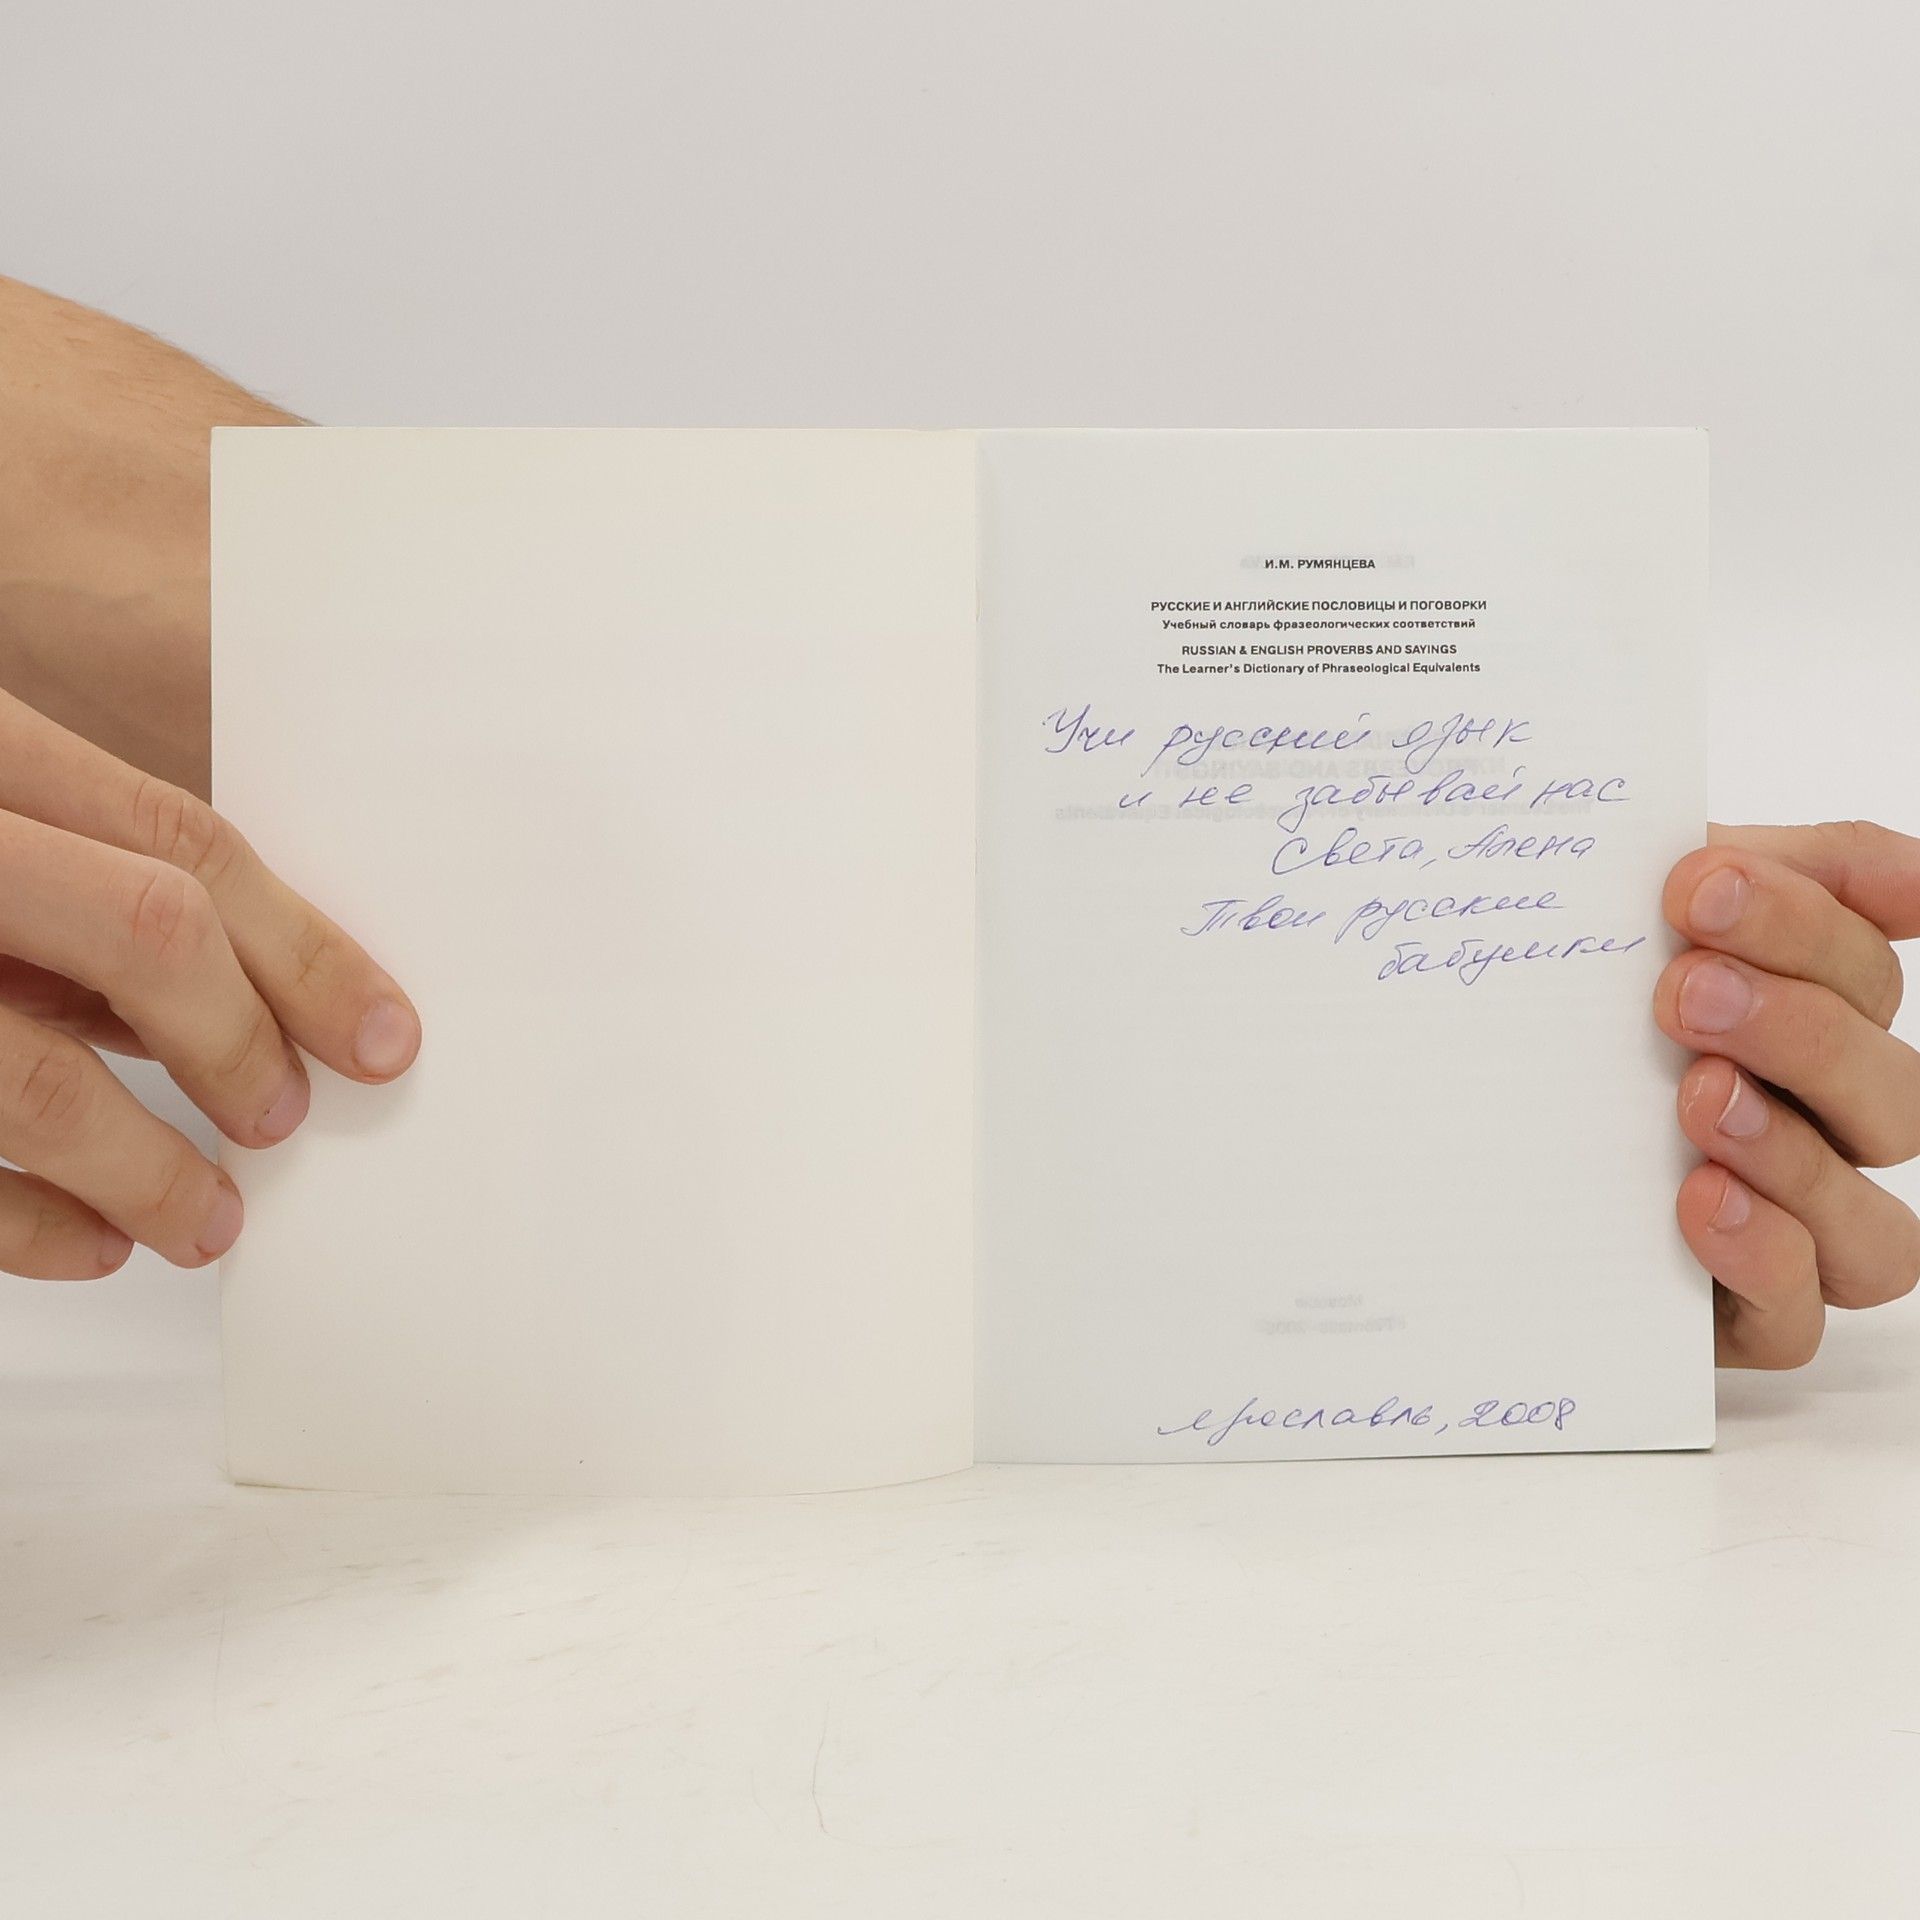 И.М. РУМЯНЦЕВА
РУССКИЕ И АНГЛИЙСКИЕ ПОСЛОВИЦЫ И ПОГОВОРКИ
Учебный словарь фразеологических соответствий
RUSSIAN & ENGLISH PROVERBS AND SAYINGS
The Learner's Dictionary of Phraseological Equivalents
Учи русский язык
и не забывай нас
Света, Алена
Твои русские
бабушки
Ярославль, 2008